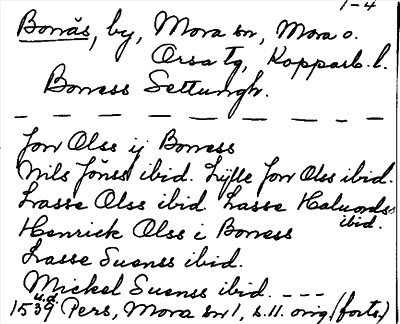 1-4
Bonäs, by, Mora sn, Mora o.
Orsa tg, Kopparb. l.
Boness Settungh.
Jon Olss ij Boness
Nils Jönss ibid. Lijlle Jon Olss ibid.
Lasse Olss ibid Lasse Haluords ibid.
Henrick Olss i Boness
Lasse Suenss ibid.
Mickel Suenss ibid. ---
1539 u.d. Pers, Mora sn 1, s. 11. orig. (forts.)